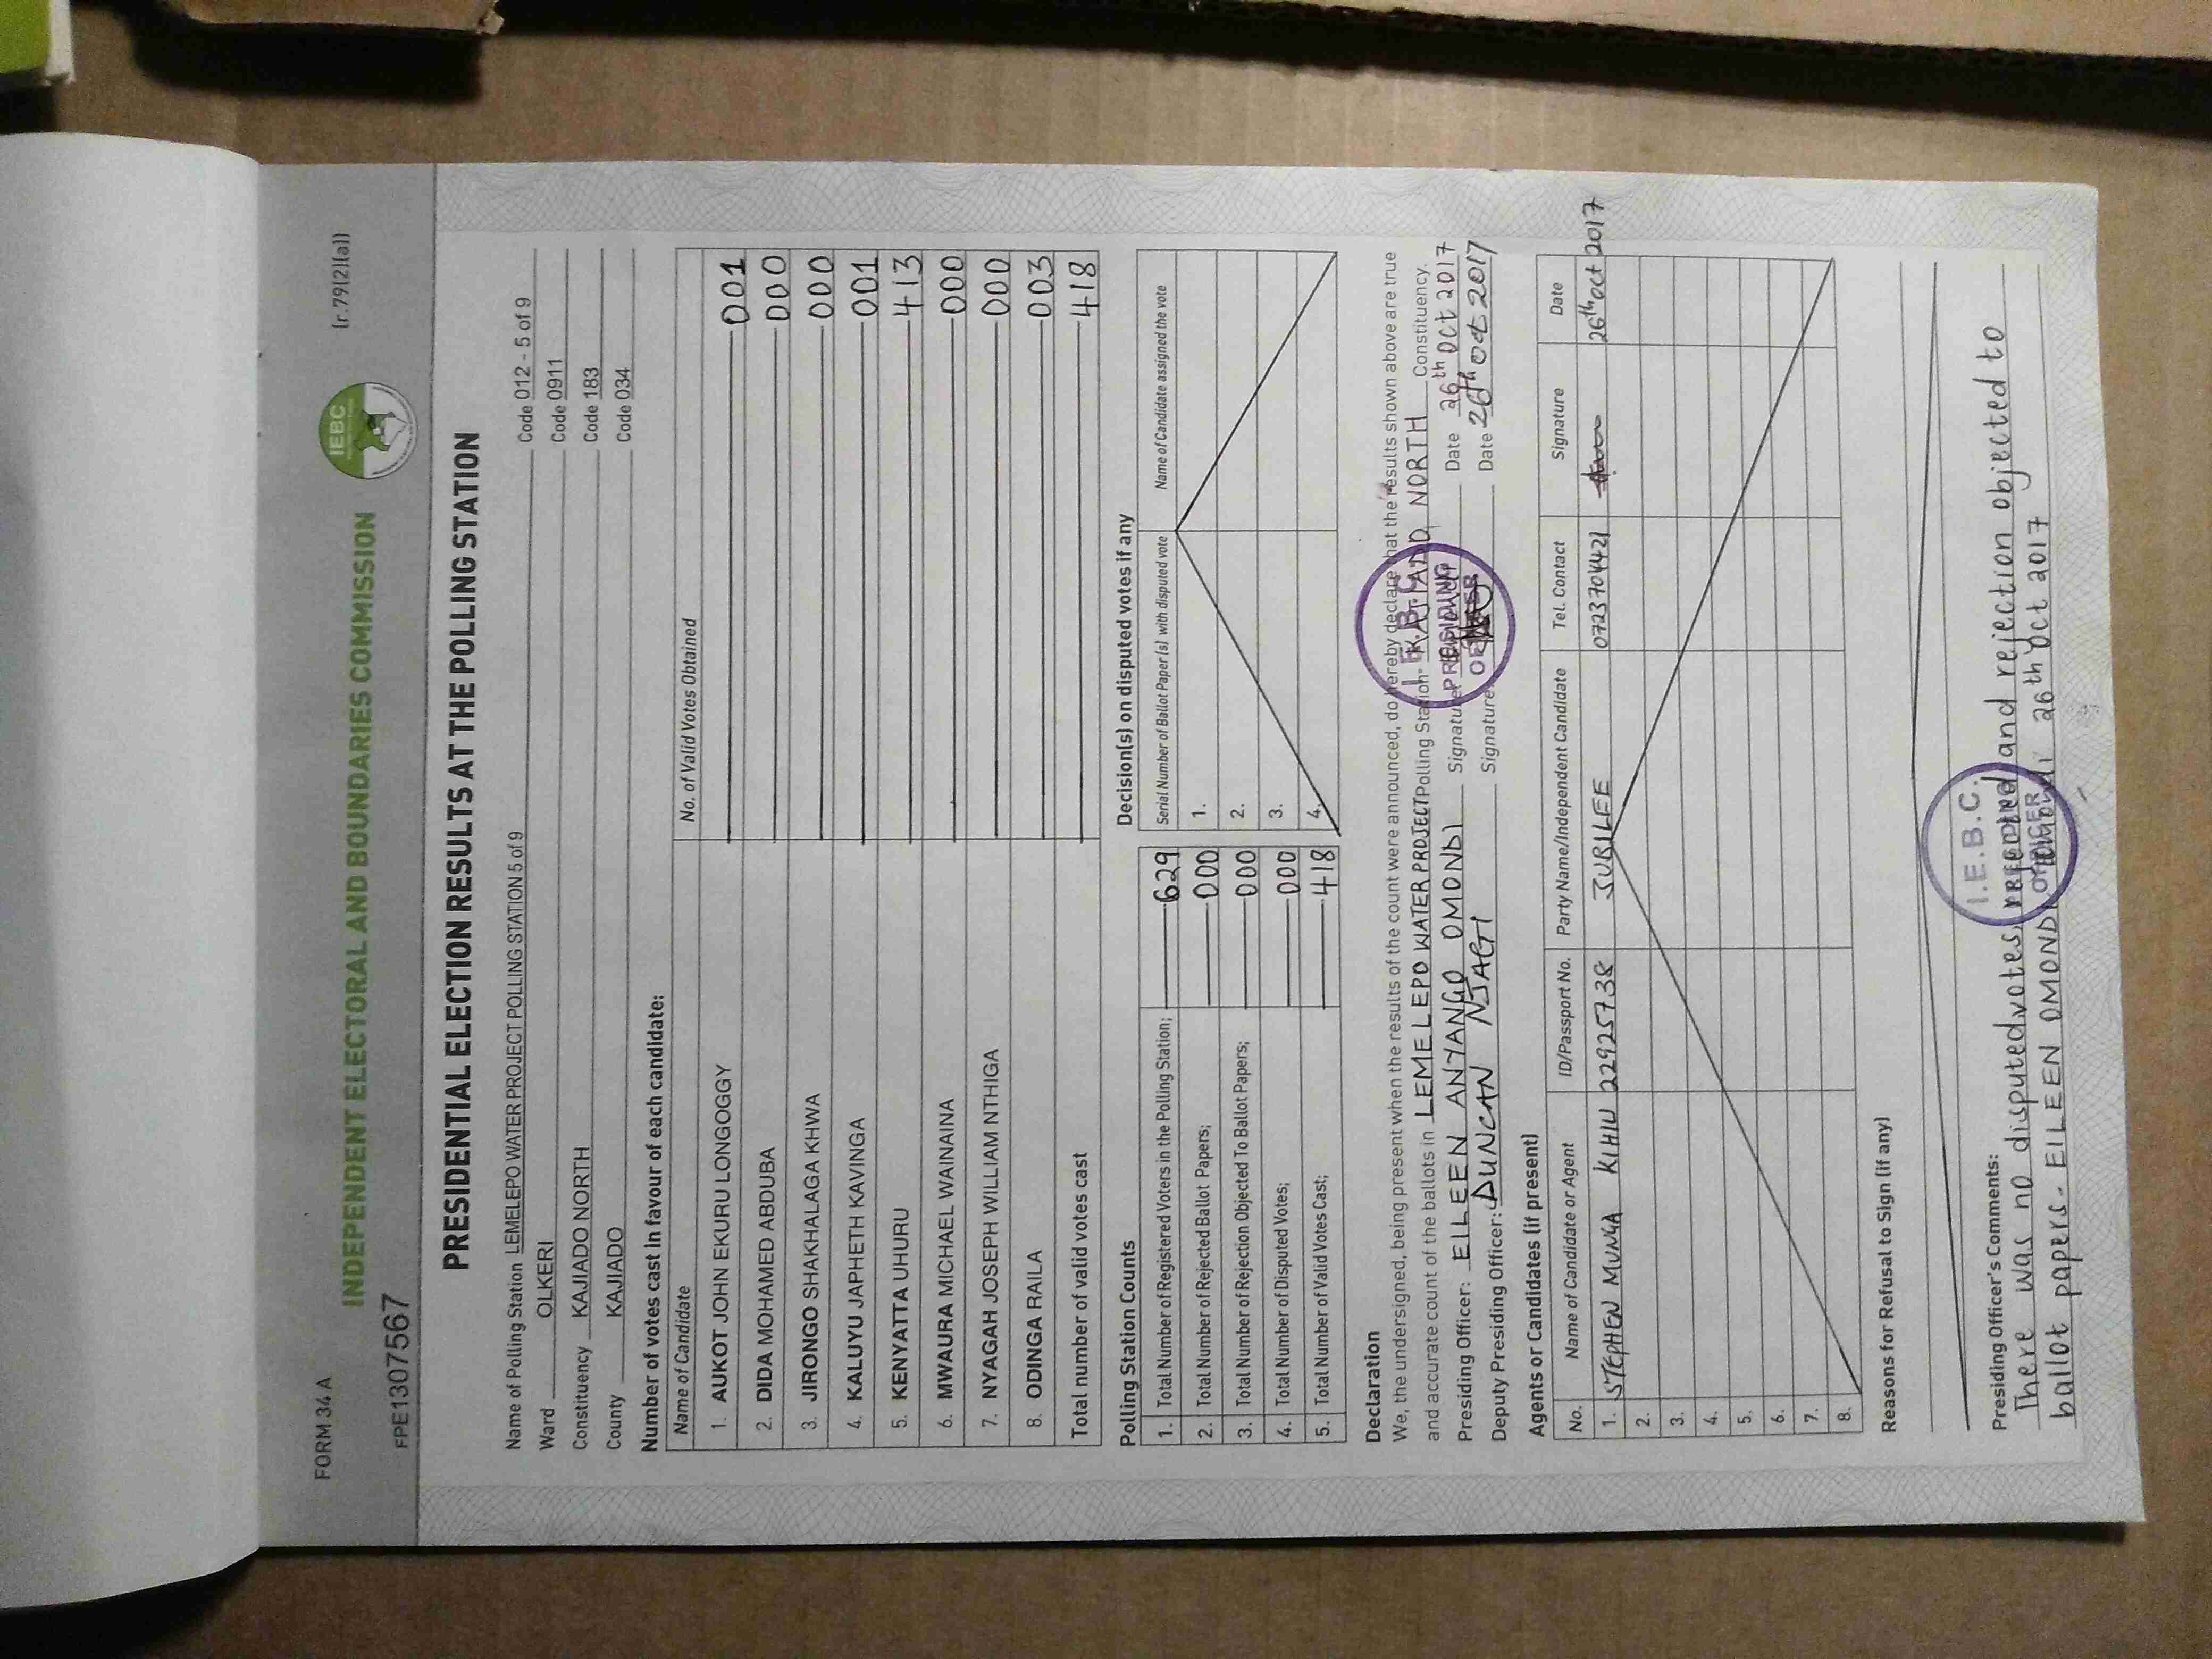 FORM 34 A
(r.79(2)(a))
IEBC
INDEPENDENT ELECTORAL AND BOUNDARIES COMMISSION
FPE1307567
PRESIDENTIAL ELECTION RESULTS AT THE POLLING STATION
Name of Polling Station LEMELEPO WATER PROJECT POLLING STATION 5 of 9 Code 012 - 5 of 9
Ward OLKERI Code 0911
Constituency KAJIADO NORTH Code 183
County KAJIADO Code 034
Number of votes cast in favour of each candidate:
Name of Candidate No. of Valid Votes Obtained
1. AUKOT JOHN EKURU LONGOGGY 001
2. DIDA MOHAMED ABDUBA 000
3. JIRONGO SHAKHALAGA KHWA 000
4. KALUYU JAPHETH KAVINGA 001
5. KENYATTA UHURU 413
6. MWAURA MICHAEL WAINAINA 000
7. NYAGAH JOSEPH WILLIAM NTHIGA 000
8. ODINGA RAILA 003
Total number of valid votes cast 418
Polling Station Counts
1. Total Number of Registered Voters in the Polling Station; 629
2. Total Number of Rejected Ballot Papers; 000
3. Total Number of Rejection Objected To Ballot Papers; 000
4. Total Number of Disputed Votes; 000
5. Total Number of Valid Votes Cast; 418
Decision(s) on disputed votes if any
Serial Number of Ballot Paper (s) with disputed vote Name of Candidate assigned the vote
1.
2.
3.
4.
Declaration
We, the undersigned, being present when the results of the count were announced, do hereby declare that the results shown above are true
and accurate count of the ballots in LEMELEPO WATER PROJECT Polling Station - KAJIADO NORTH Constituency.
Presiding Officer: EILEEN ANYANGO OMONDI Signature Date 26th Oct 2017
Deputy Presiding Officer: DUNCAN NJAGI Signature Date 26th Oct 2017
I.E.B.C.
PRESIDING
OFFICER
Agents or Candidates (if present)
No. Name of Candidate or Agent ID/Passport No. Party Name/Independent Candidate Tel. Contact Signature Date
1. STEPHEN MUNGA KIHIU 22925738 JUBILEE 0723704421 26th Oct 2017
2.
3.
4.
5.
6.
7.
8.
Reasons for Refusal to Sign (if any)
Presiding Officer's Comments:
There was no disputed votes, rejected and rejection objected to
ballot papers. EILEEN OMONDI 26th Oct 2017
I.E.B.C.
OFFICER